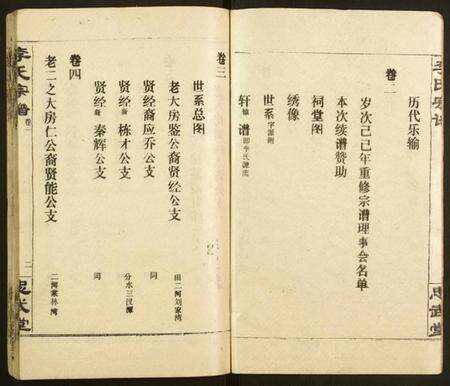 李氏宗谱
卷二
历代乐输
岁次己巳年重修宗谱理事会名单
本次续谱赞助
祠堂图
绣像
世系字派附
轩辕谱即李氏源流
思武堂
卷三
世系总图
老大房鉴公裔贤经公支 田二河刘家湾
贤经裔应乔公支 同
贤经裔栋才公支 分水三汉潭
贤经裔秦辉公支 同
卷四
老二之大房仁公裔贤能公支
李氏宗谱 卷
二
思武堂